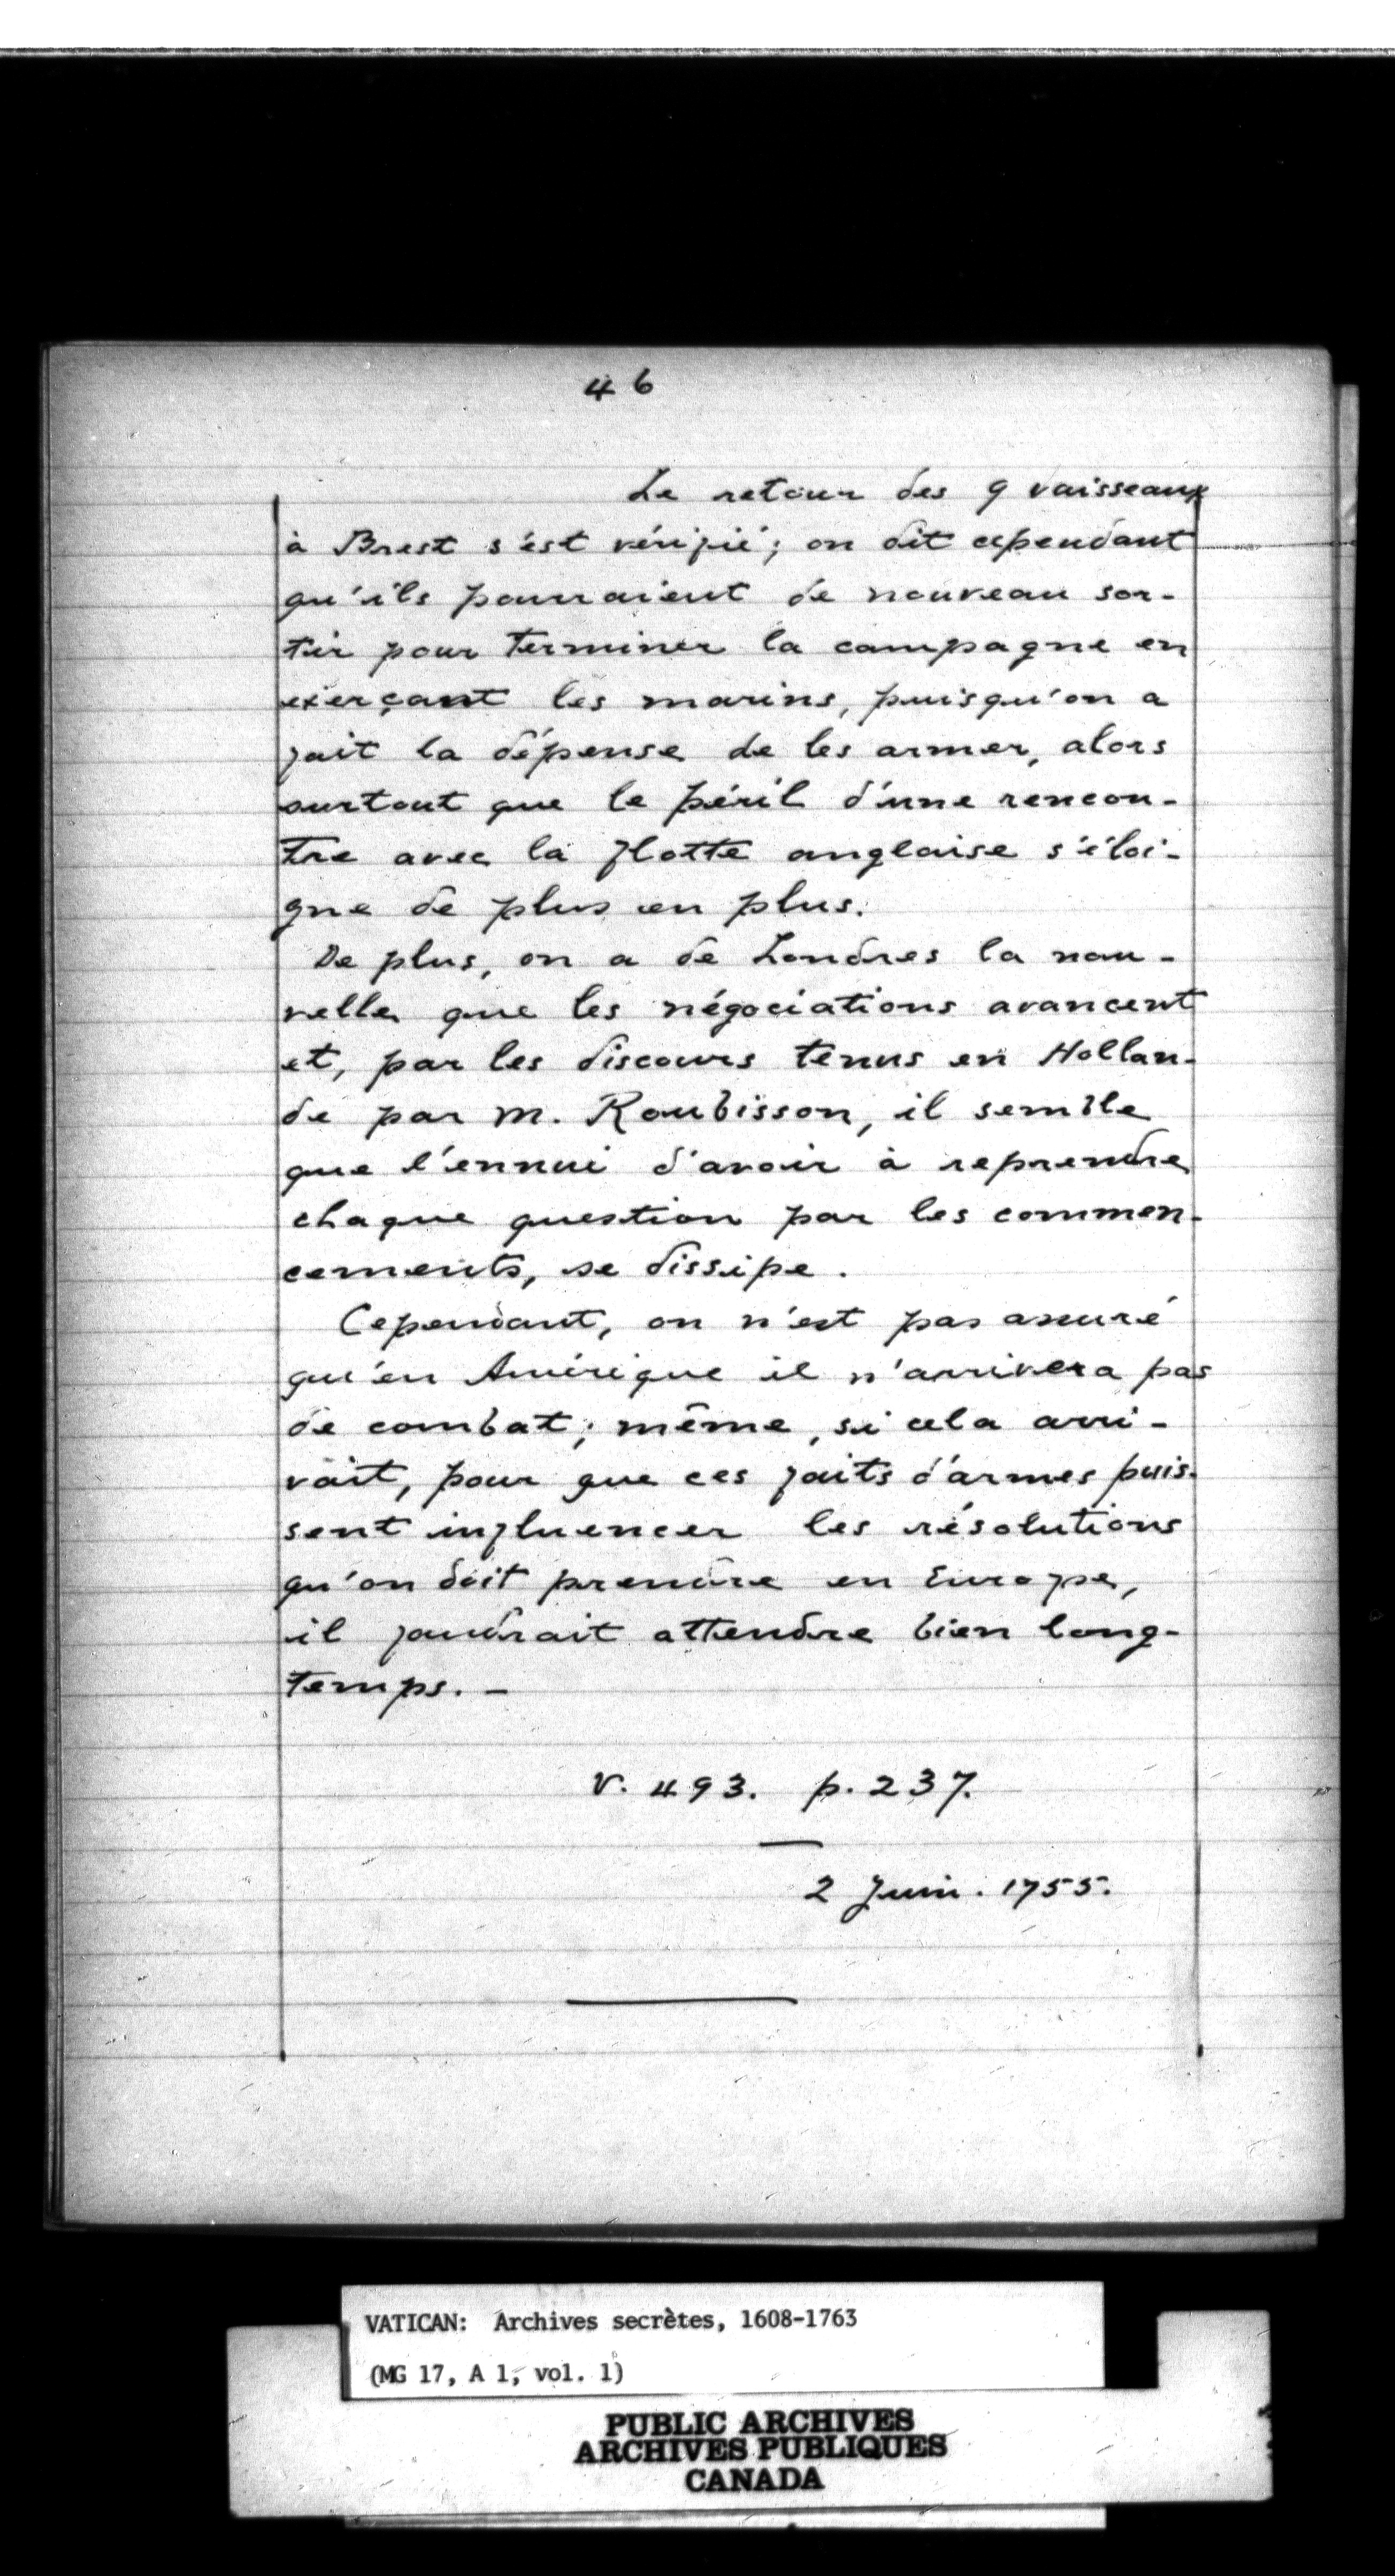 46
Le retour des 9 vaisseaux
à Brest s'est vérifié; on dit cependant
qu'ils pourraient de nouveau sor-
tir pour terminer la campagne en
exerçant les marins, puisqu'on a
fait la dépense de les armer, alors
surtout que le péril d'une rencon-
tre avec la flotte anglaise s'éloi-
gne de plus en plus.
De plus, on a de Londres la nou-
velle que les négociations avancent
et, par les discours tenus en Hollan-
de par M. Roubisson, il semble
que l'ennui d'avoir à reprendre
chaque question par les commen-
cements, se dissipe.
Cependant, on n'est pas assuré
qu'en Amérique il n'arrivera pas
de combat; même, si cela arri-
vait, pour que ces faits d'armes puis-
sent influencer les résolutions
qu'on doit prendre en Europe,
il faudrait attendre bien long-
temps. -
V. 493. p. 237.
2 Juin. 1755.
VATICAN: Archives secrètes, 1608-1763
(MG 17, A 1, vol. 1)
PUBLIC ARCHIVES
ARCHIVES PUBLIQUES
CANADA